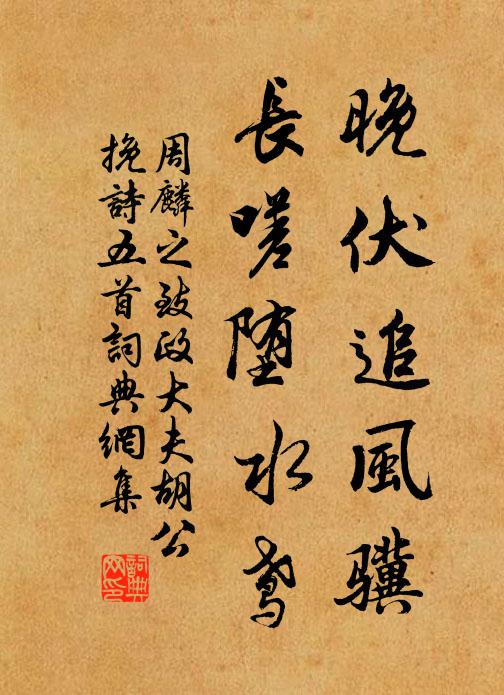 晚伏追風驥
長嗟堕水鸢
周麟之致政大夫胡公
挽詩五首詞典網集
詞典网印